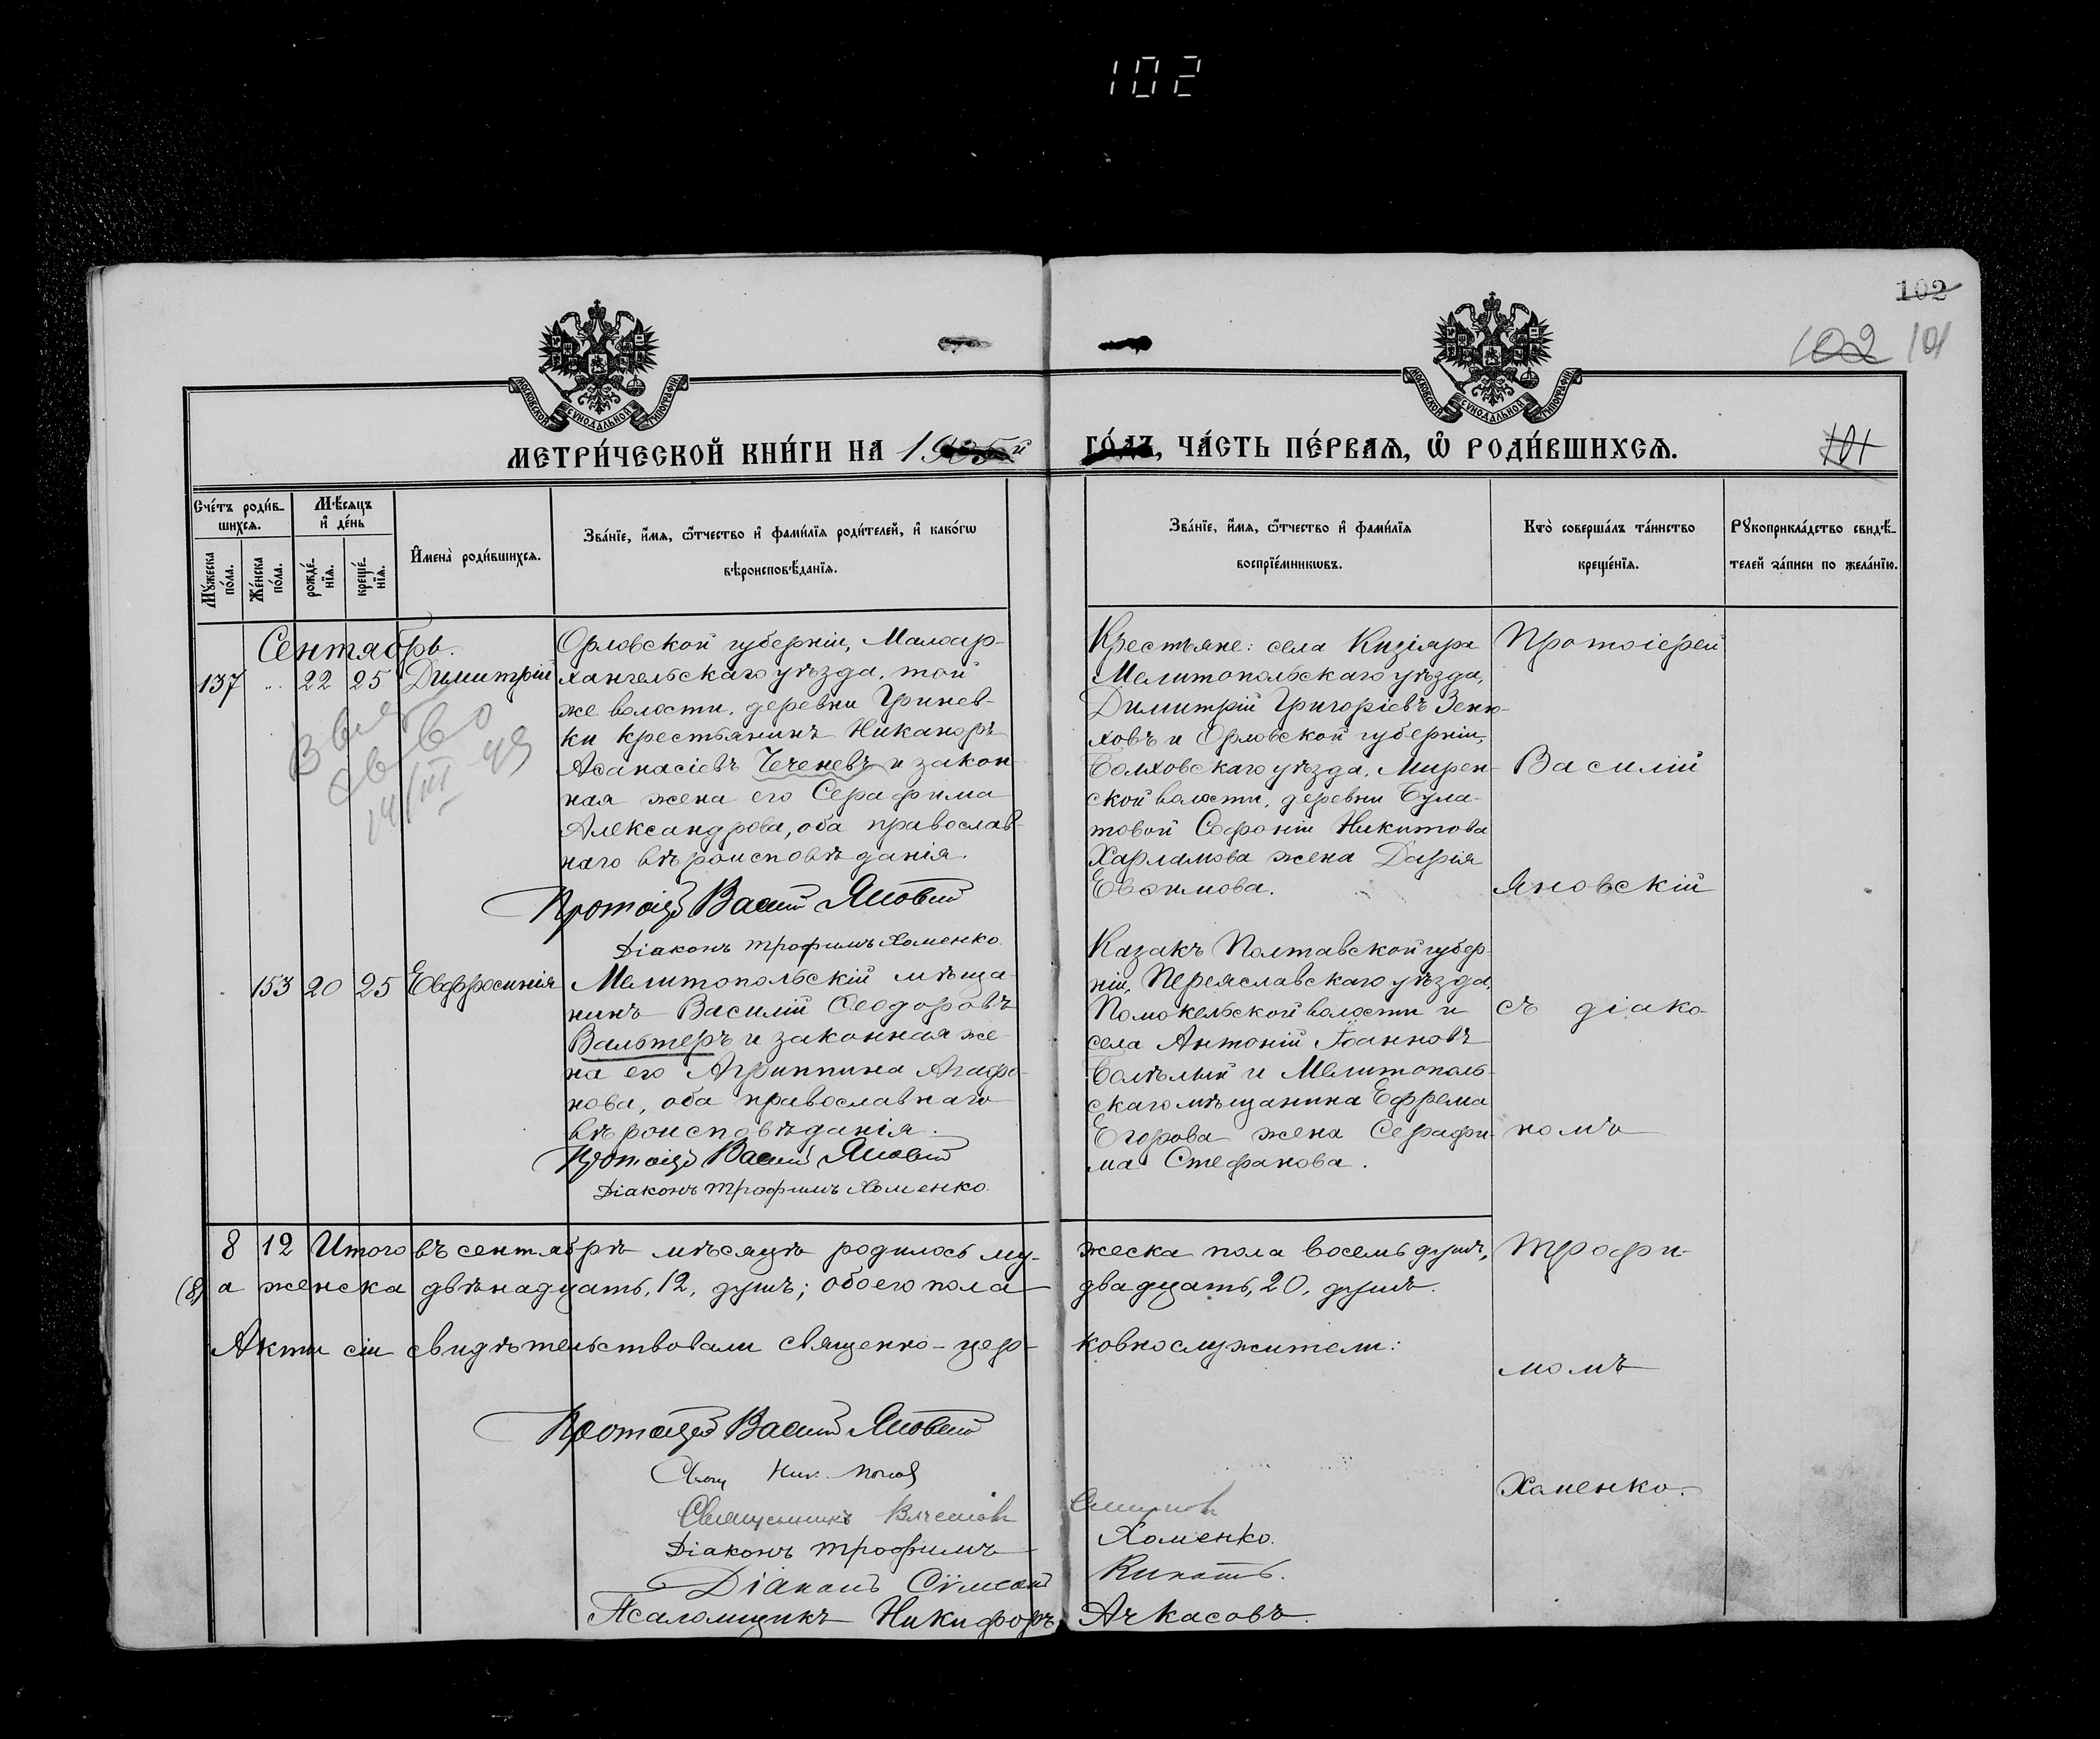 102
102
102 101
МОСКОВСКОЙ СѴНОДАЛЬНОЙ ТИПОГРАФІИ
МОСКОВСКОЙ СѴНОДАЛЬНОЙ ТИПОГРАФІИ
МЕТРИ́ЧЕСКОЙ КНИ́ГИ НА 1905й ГО́ДЪ, ЧА́СТЬ ПЕ́РВАѦ, Ѽ РОДИ́ВШИХСѦ. 101
Сче́тъ роди́вшихсѧ.
Мꙋ́жеска по́ла.
Же́нска по́ла.
Мѣ́сѧцъ и҆ де́нь
рожде́нїѧ.
креще́нїѧ.
И҆мена̀ роди́вшихсѧ.
Зва́нїе, и҆́мѧ, ѻ҆́тчество и҆ фами́лїѧ роди́телей, и҆ како́гѡ
вѣроисповѣ́данїѧ.
Зва́нїе, и҆́мѧ, ѻ҆́тчество и҆ фами́лїѧ
воспрїе́мникѡвъ.
Кто̀ соверша́лъ та́инство
креще́нїѧ.
Рꙋкоприкла́дство свидѣ́-
телей за́писи по жела́нїю.
Сентябрь.
137 " 22 25 Димитрій
Орловской губерніи, Малоар-
хангельскаго уѣзда, той
же волости, деревни Гринев-
ки крестьянинъ Никаноръ
Аѳанасіевъ Чеченевъ и закон-
ная жена его Серафима
Александрова, оба православ-
наго вѣроисповѣданія.
Протоіерей Василій Яновскій
Діаконъ Трофимъ Хоменко.
Крестьяне: села Кизіяра
Мелитопольскаго уѣзда,
Димитрій Григоріевъ Зеню-
ховъ и Орловской губерніи,
Болховскаго уѣзда, Мирен-
ской волости, деревни Була-
товой Софонія Никитова
Харламова жена Дарія
Евѳимова.
Протоіерей
Василій
Яновскій
153 20 25 Евфросинія
Мелитопольскій мѣща-
нинъ Василій Ѳеодоровъ
Вальтеръ и законная же-
на его Агриппина Агафо-
нова, оба православнаго
вѣроисповѣданія.
Протоіерей Василій Яновскій
Діаконъ Трофимъ Хоменко.
Казакъ Полтавской губер-
ніи, Переяславскаго уѣзда,
Помокельской волости и
села Антоній Іоанновъ
Болѣлый и Мелитополь-
скаго мѣщанина Ефрема
Егорова жена Серафи-
ма Стефанова.
съ діако-
номъ
8 12 Итого въ сентябрѣ мѣсяцѣ родилось му- жеска пола восемь душъ,
(8) а женска двѣнадцать, 12, душъ; обоего пола двадцать, 20, душъ.
Трофи-
Акты сіи свидѣтельствовали священно-цер- ковнослужители:
момъ
Протоіерей Василій Яновскій
Хоменко.
Діаконъ Трофимъ Хоменко.
Діаконъ Сѵмеонъ
Псаломщикъ Никифоръ Ачкасовъ.